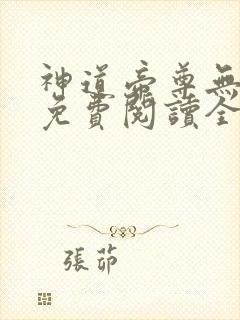 神道帝尊無
免費閱讀全
張茆